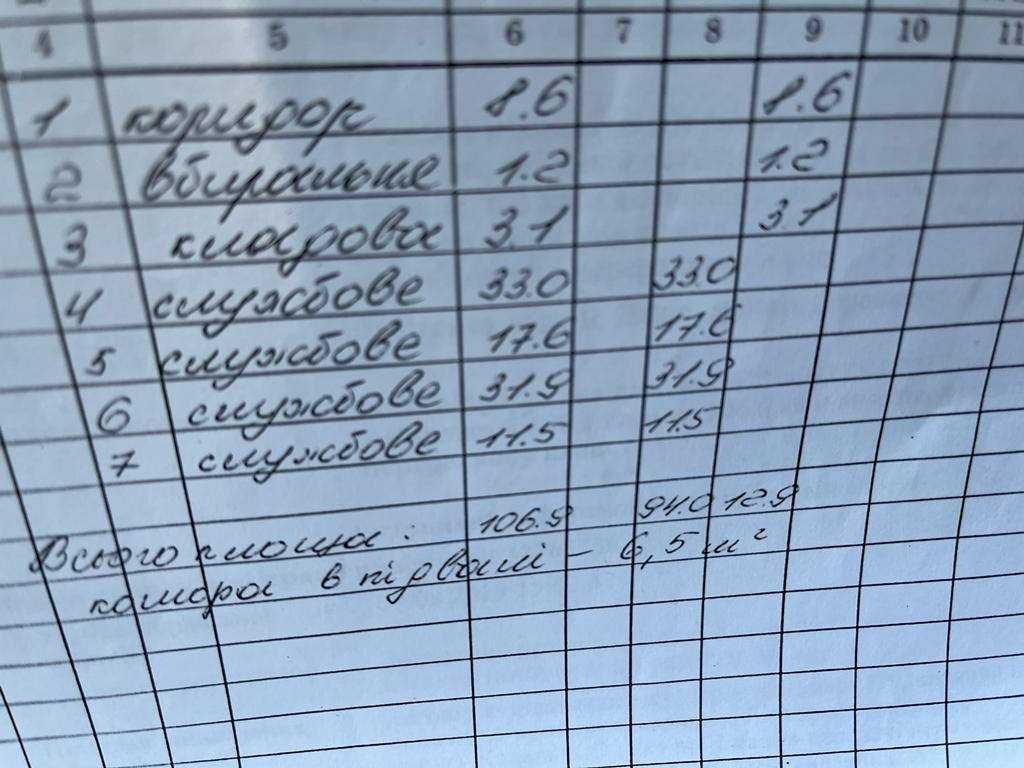 4 5 6 7 8 9 10 11
1 коридор 8.6 8.6
2 вбиральня 1.2 1.2
3 кладова 3.1 3.1
4 службове 33.0 33.0
5 службове 17.6 17.6
6 службове 31.9 31.9
7 службове 11.5 11.5
Всього площа: 106.9 94.0 12.9
комора в підвалі – 6,5 м²